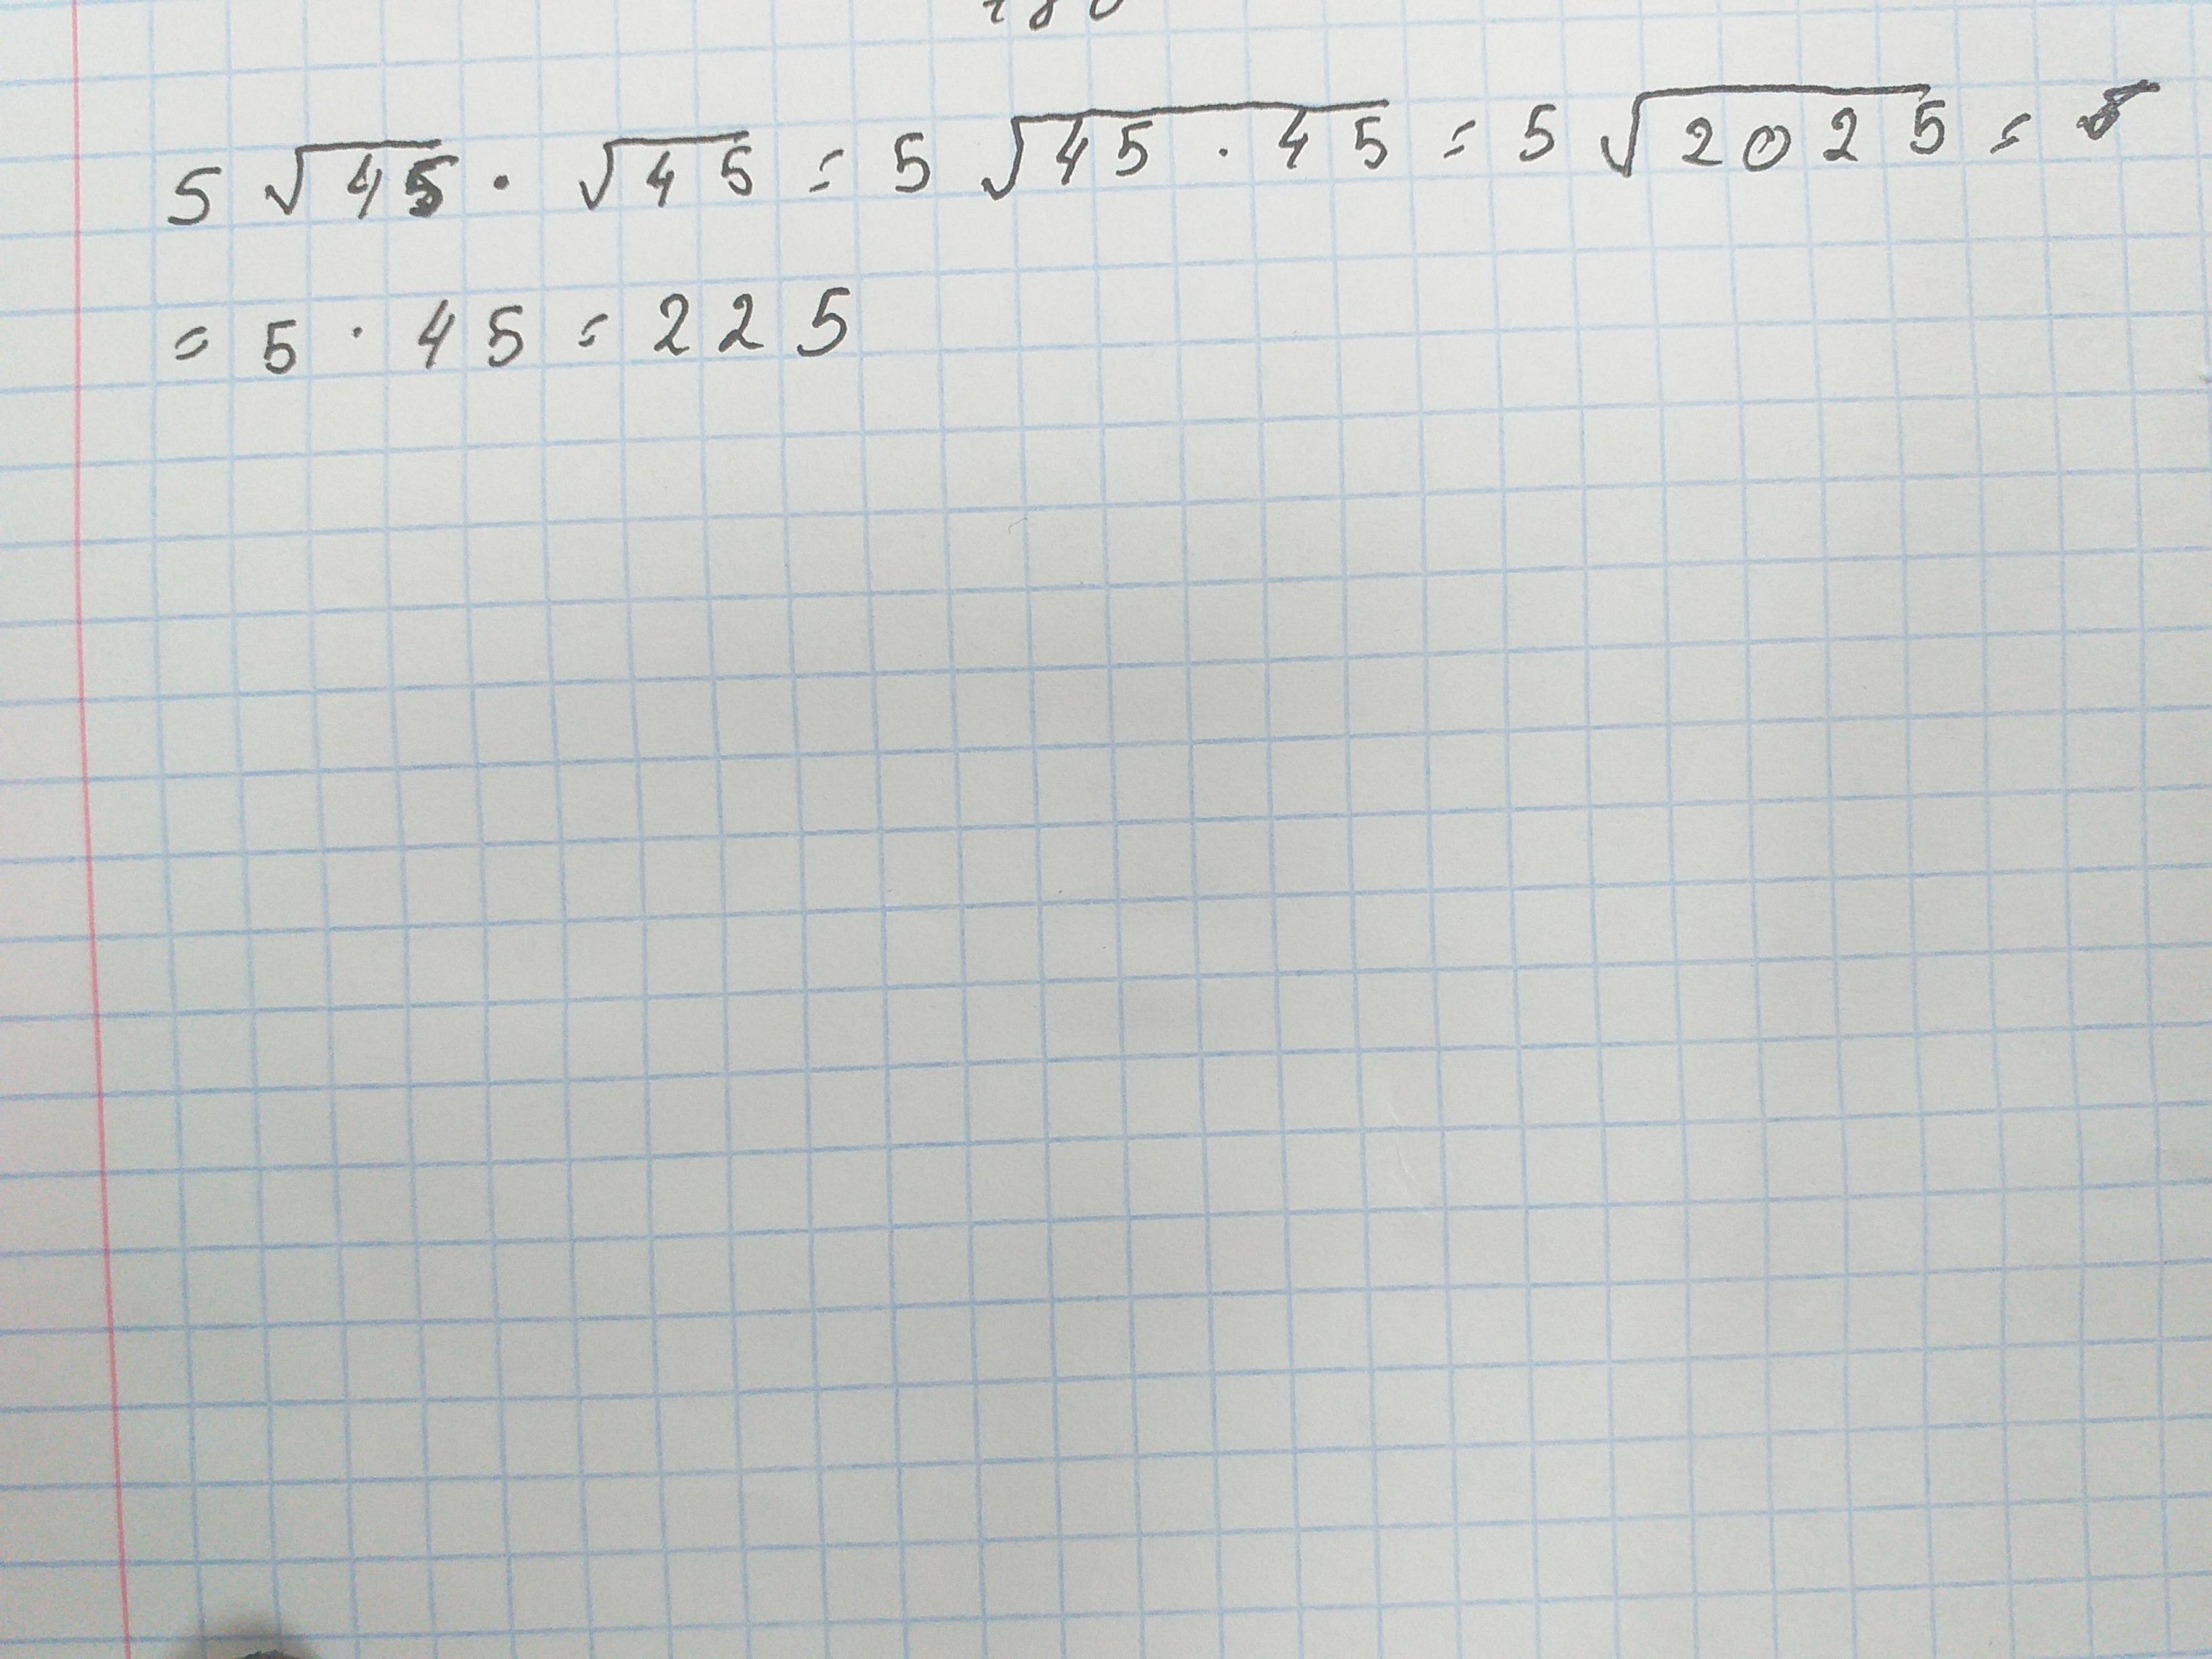 5√45 · √45 = 5√45 · 45 = 5√2025 =
= 5 · 45 = 225